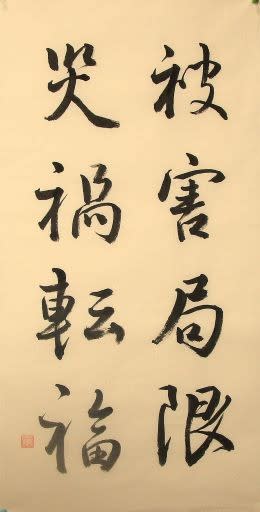 被害局限
哭禍転福